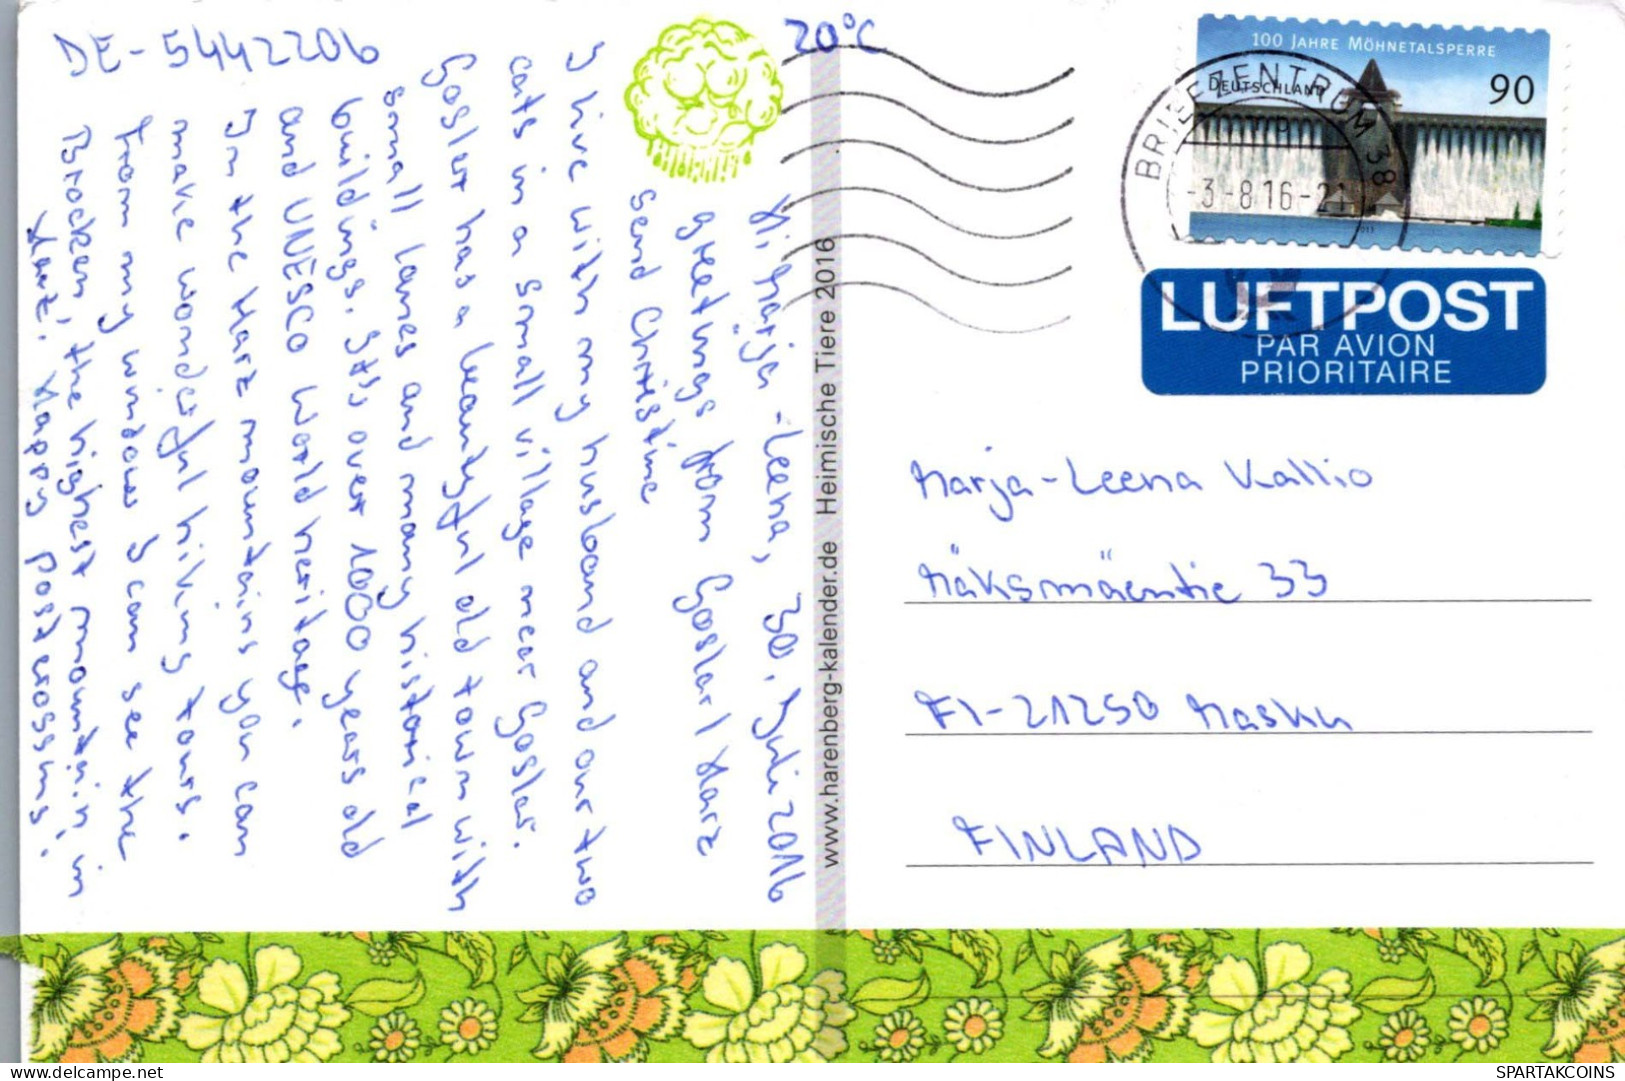 DE-5442206
20°C
Hi Marja-Leena, 30. Juli 2016
greetings from Goslar / Harz
send Christine
I live with my husband and our two
cats in a small village near Goslar.
Goslar has a beautyful old town with
small lanes and many historical
buildings. It's over 1000 years old
and UNESCO World heritage.
In the Harz mountains you can
make wonderful hiking tours.
From my window I can see the
Brocken, the highest mountain in
Harz. Happy postcrossing.
www.harenberg-kalender.de Heimische Tiere 2016
100 JAHRE MÖHNETALSPERRE
DEUTSCHLAND
90
BRIEFZENTRUM 38
-3.-8.16-21
LUFTPOST
PAR AVION
PRIORITAIRE
Marja-Leena Kallio
Mäksmäentie 33
FI-21250 Masku
FINLAND
SPARTAKCOINS